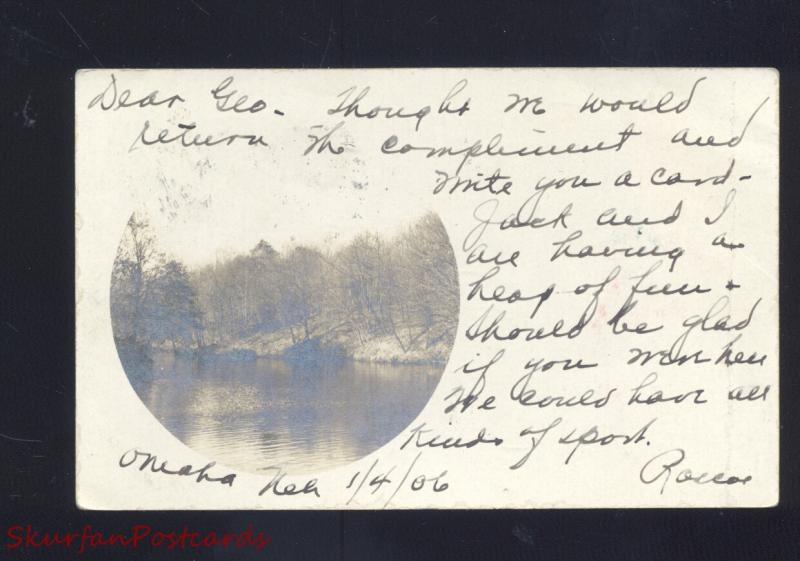 Dear Geo- Thought we would
return the compliment and
write you a card-
Jack and I
are having a
heap of fun.
Should be glad
if you were here
We could have all
kinds of sport.
Omaha Neb 1/4/06 Roscoe
SkurfanPostcards